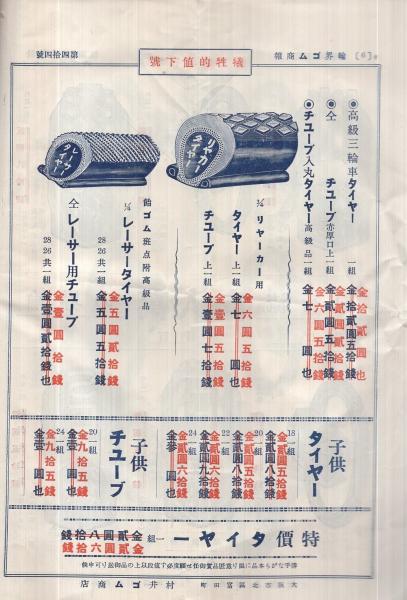 輪界ゴム商報
第四拾四號
犠牲的値下號
◉高級三輪車タイヤー 一組 金拾貳圓五拾錢
金拾貳圓也
◉仝 チユーブ 赤厚口上一組 金貳圓五拾錢
金貳圓貳拾錢
◉チユーブ入丸タイヤー 高級品一組 金七圓也
金六圓五拾錢
リヤカータイヤー
¾ リヤーカー用
タイヤー 上一組 金七圓也
金六圓五拾錢
チユーブ 上一組 金壹圓七拾錢
金壹圓五拾錢
レーサータイヤー
飴ゴム斑点附高級品
¼ レーサータイヤー
28 26 共一組 金五圓五拾錢
金五圓貳拾錢
仝 レーサー用チユーブ
28 26 共一組 金壹圓貳拾錢
金壹圓拾錢
子供タイヤー
18 一組 金貳圓五拾錢
20 一組 金貳圓八拾錢
22 一組 金貳圓九拾錢
24 一組 金參圓也
子供チユーブ
20 一組 金壹圓也
金九拾五錢
24 一組 金壹圓也
金九拾五錢
特價タイヤー 一組 金貳圓八拾錢
金貳圓六拾錢
大阪市北區富田町 村井ゴム商店